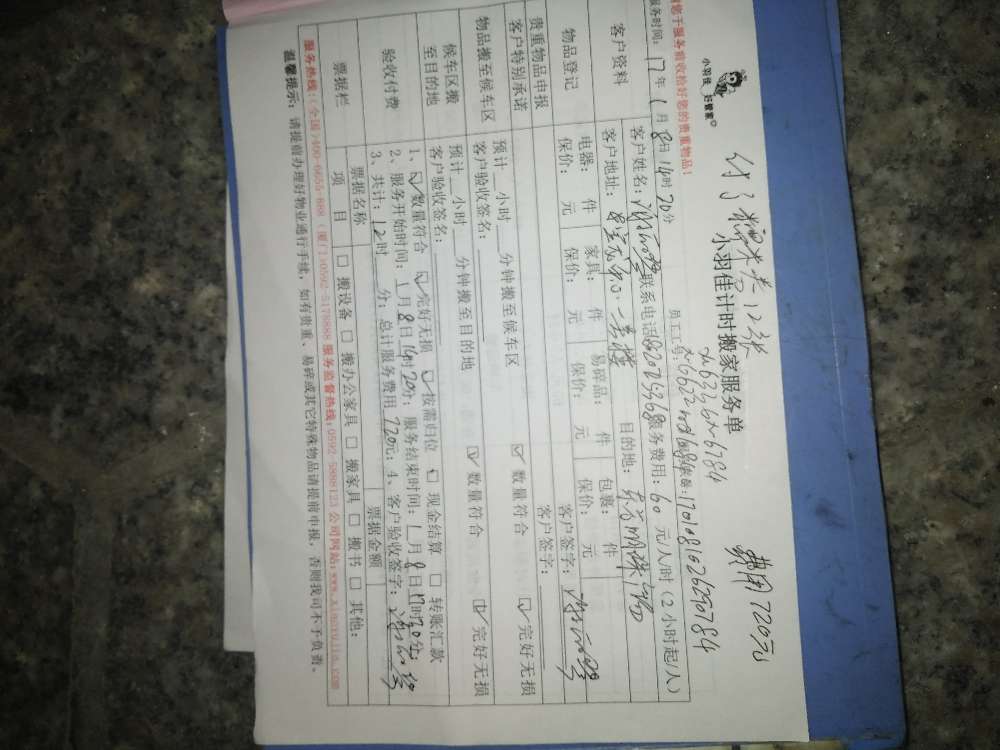 小羽佳 好管家
费用720元
小羽佳计时搬家服务单
您于服务前收拾好您的贵重物品!
员工工号:
服务时间: 17年 1月 8日 14时 20分
客户资料
客户姓名: 联系电话 服务费用: 60 元/人/时(2小时起/人)
客户地址: 目的地:
物品登记
电器: 件 家具: 件 易碎品: 件 包裹: 件
保价: 元 保价: 元 保价: 元 保价: 元
贵重物品申报
客户签字:
客户特别承诺
客户签字:
物品搬至候车区
预计 小时 分钟搬至候车区 ☑ 数量符合 ☑ 完好无损
客户验收签名:
候车区搬至目的地
预计 小时 分钟搬至目的地 ☑ 数量符合 ☑ 完好无损
客户验收签名:
验收付费
1、☑ 数量符合 ☑ 完好无损 ☑ 按需归位 现金结算 □ 转账汇款
2、服务开始时间: 1月 8日 14时 20分; 服务结束时间: 1月 8日 17时 20分;
3、共计: 12时 分; 总计服务费用 720元; 4、客户验收签字:
票据栏
票据名称 票据金额
项 目 □ 搬设备 □ 搬办公家具 □ 搬家具 □ 搬书 □ 其他:
服务热线:(全国)400-6655-888 (厦门)0592-5178888 服务监督热线:0592-5898123 公司网站:www.xiaoyujia.com
温馨提示: 请提前办理好物业通行手续, 如有贵重、易碎或其它特殊物品请提前申报, 否则我司不予负责。